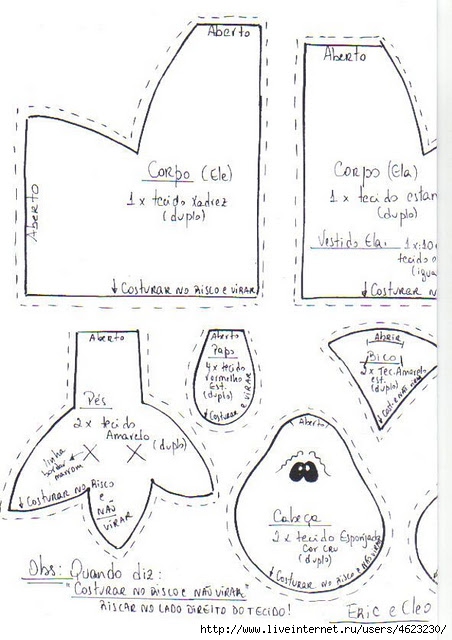 Aberto
Aberto
Corpo (Ele)
1 x tecido xadrez
(duplo)
Aberto
↓ Costurar no risco e virar
Corpo (Ela)
1 x tecido estam
(duplo)
Vestido Ela. 1x:10
tecido
(igua
↓ Costurar n
Aberto
Pés
2 x tecido
Amarelo
(duplo)
linha
bordar
marrom
↓ Costurar no Risco
e
NÃO
VIRAR
Aberto
Papo
4 x tecido
vermelho
Est.
(duplo)
↓ Costurar e virar
Abrir
Bico
2 x Tec. Amarelo
est.
(duplo)
↓ Cost e não virar
Aberto
Cabeça
2 x tecido Esponjado
Cor CRU
(duplo)
↓ Costurar no Risco e não virar
Obs: Quando diz:
"Costurar no Risco e NÃO VIRAR"
RISCAR NO LADO DIREITO DO TECIDO!
Eric e Cleo
http://www.liveinternet.ru/users/4623230/